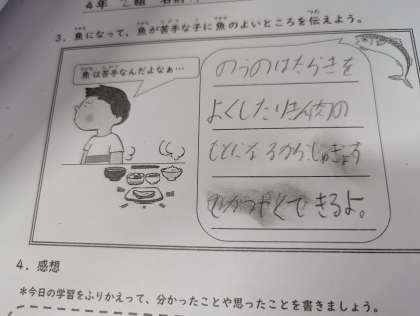 4年 組 名前
3. 魚になって、魚が苦手な子に魚のよいところを伝えよう。
魚は苦手なんだよなぁ…
のうのはたらきを
よくしたりきん肉の
もとになるから、じゅぎょう
でかつやくできるよ。
4. 感想
*今日の学習をふりかえって、分かったことや思ったことを書きましょう。